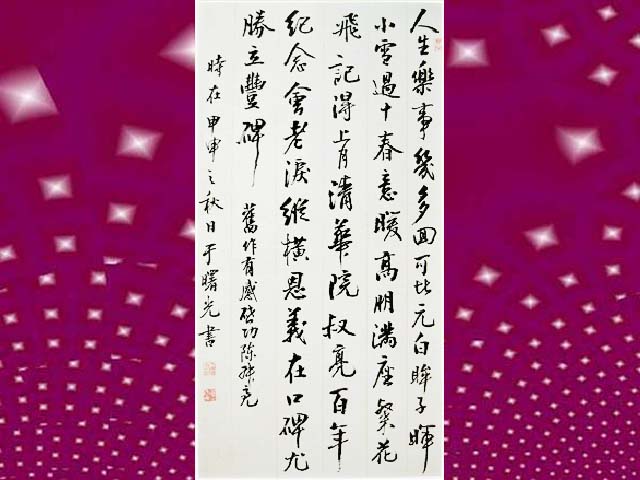 人生樂事幾多回可比元白眸子暉
小雪過十春意暖高朋滿座粲花
飛記得上月清華院叔亮百年
紀念會老淚縱橫恩義在口碑尤
勝立豐碑 舊作有感啓功陳亮
時在甲申之秋日于曙光書